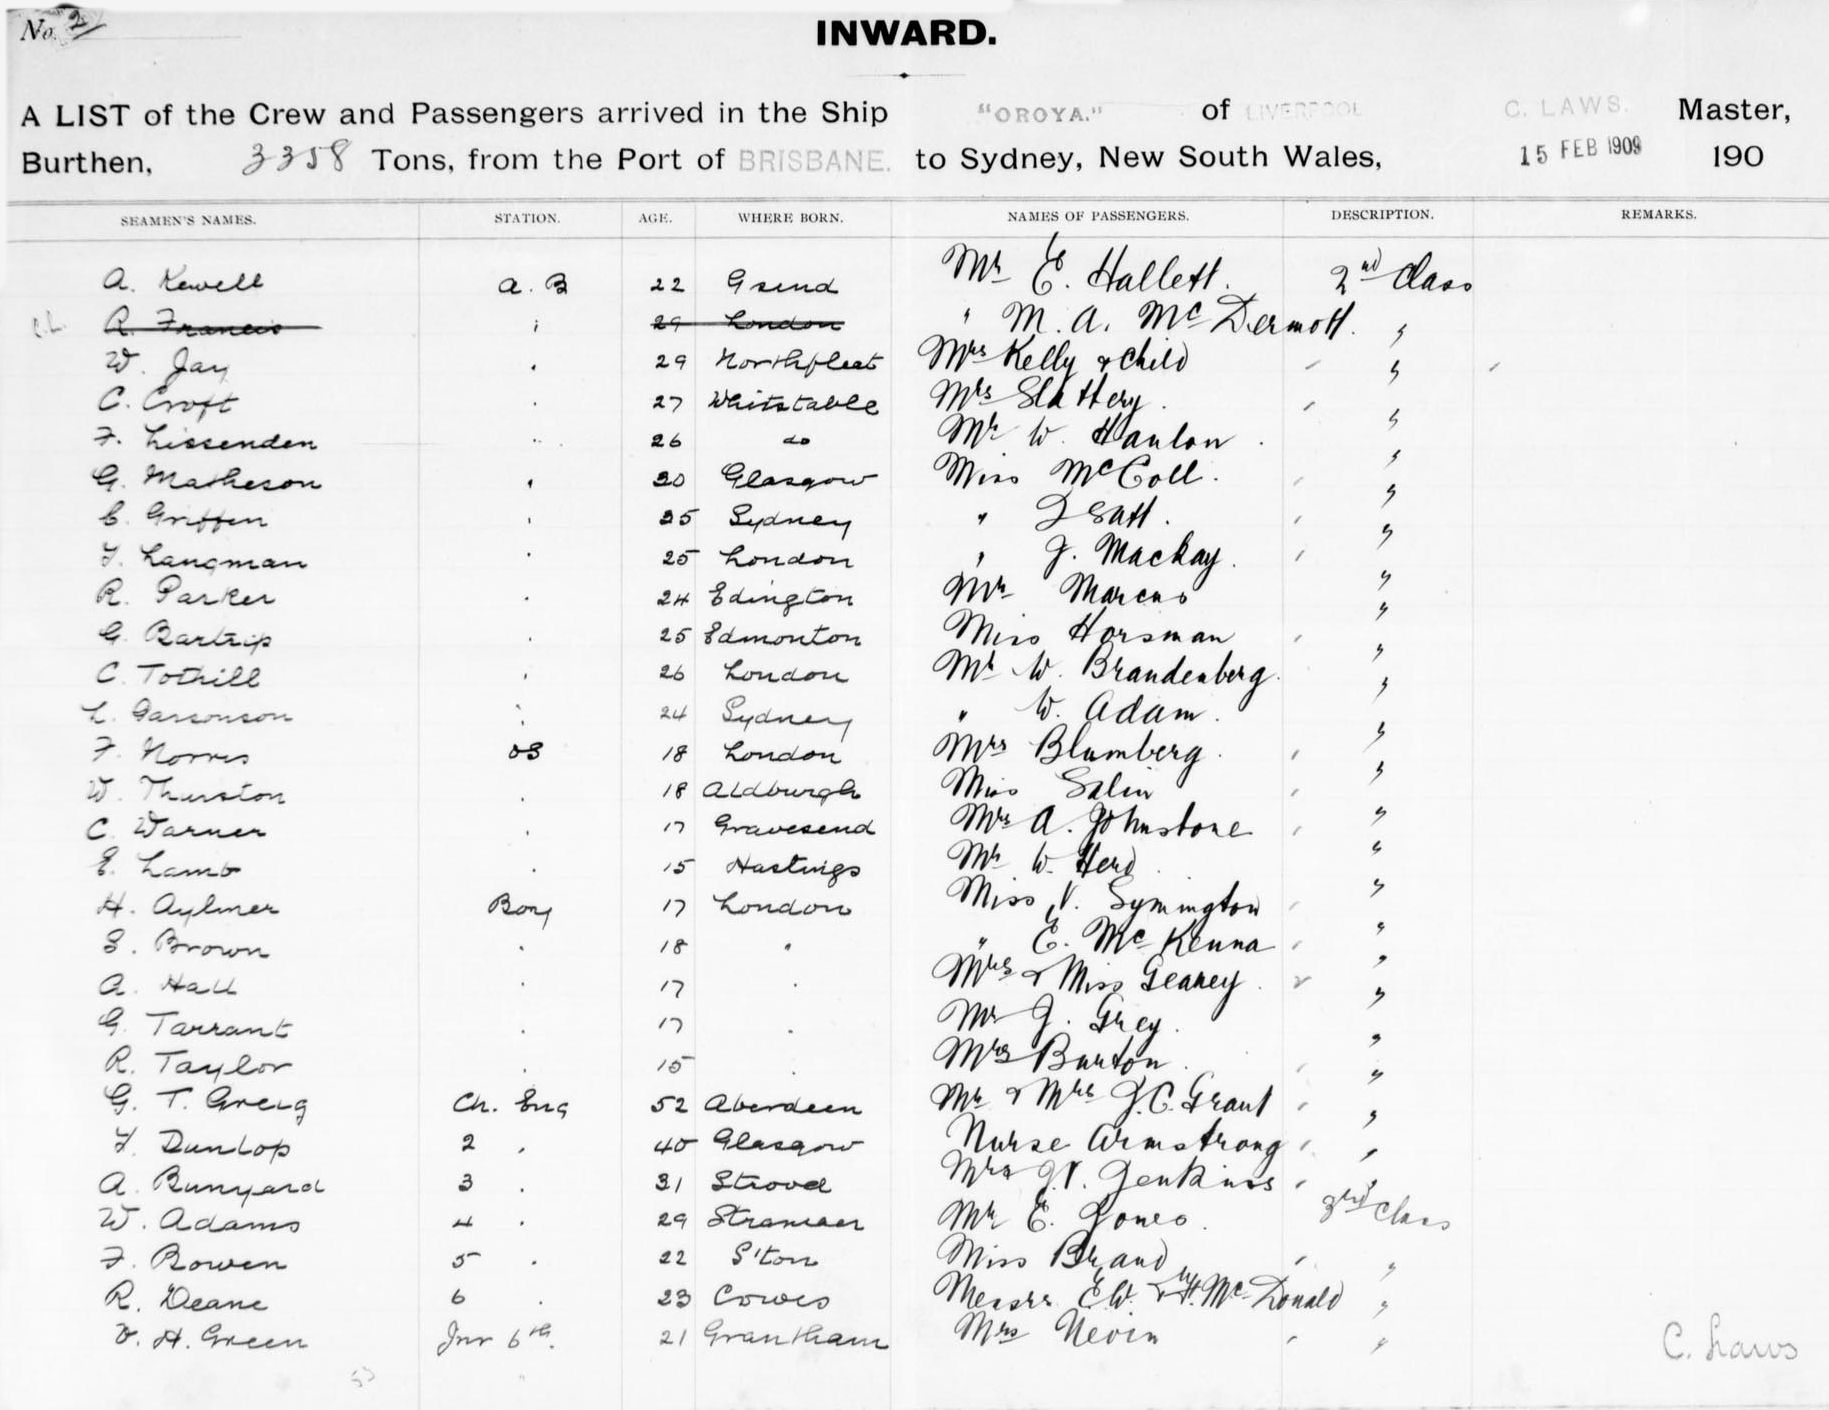 No. 2
INWARD.
A LIST of the Crew and Passengers arrived in the Ship "OROYA." of LIVERPOOL C. LAWS. Master,
Burthen, 3358 Tons, from the Port of BRISBANE. to Sydney, New South Wales, 15 FEB 1909 190
SEAMEN'S NAMES. STATION. AGE. WHERE BORN. NAMES OF PASSENGERS. DESCRIPTION. REMARKS.
A. Kewell A.B 22 Gsend Mr E. Hallett. 2nd Class
R. Francis " 29 London " M. A. McDermott. "
W. Jay " 29 Northfleet Mrs Kelly & Child "
C. Croft " 27 Whitstable Mrs Slattery. "
F. Lissenden " 26 do Mr W. Hanlon. "
G. Matheson " 30 Glasgow Miss McColl. "
C. Griffen " 25 Sydney " "
Langman " 25 London " J. Mackay. "
R. Parker " 24 Edington Mr Marcus "
G. Bartrip " 25 Edmonton Miss Horsman "
C. Tothill " 26 London Mr W. Brandenberg. "
L. " 24 Sydney " W. Adam. "
F. Norris OS 18 London Mrs Blumberg. "
W. Thurston " 18 Aldburgh Miss Salin "
C. Warner " 17 Gravesend Mrs A. Johnstone "
E. Lamb " 15 Hastings Mr W. Herd "
H. Aylmer Boy 17 London Miss V. Symington "
S. Brown " 18 " " E. McKenna "
A. Hall " 17 " Mrs & Miss Geaney. "
G. Tarrant " 17 " Mr J. Grey. "
R. Taylor " 15 " Mrs Burton. "
G. T. Greig Ch. Eng 52 Aberdeen Mr & Mrs J.C. Grant "
Dunlop 2 " 40 Glasgow Nurse Armstrong "
A. Bunyard 3 " 31 Strood Mrs J.V. Jenkins "
W. Adams 4 " 29 Stranraer Mr E. Jones. 3rd Class
F. Bowen 5 " 22 S'ton Miss Brand "
R. Deane 6 " 23 Cowes Messrs E.W. & McDonald "
H. Green Jnr 6th. 21 Grantham Mrs Nevin "
C. Laws